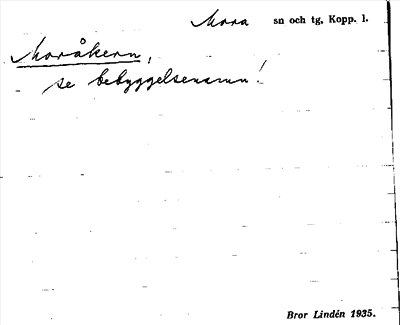 Mora sn och tg, Kopp. l.
Moråkern,
se bebyggelsenamn!
Bror Lindén 1935.